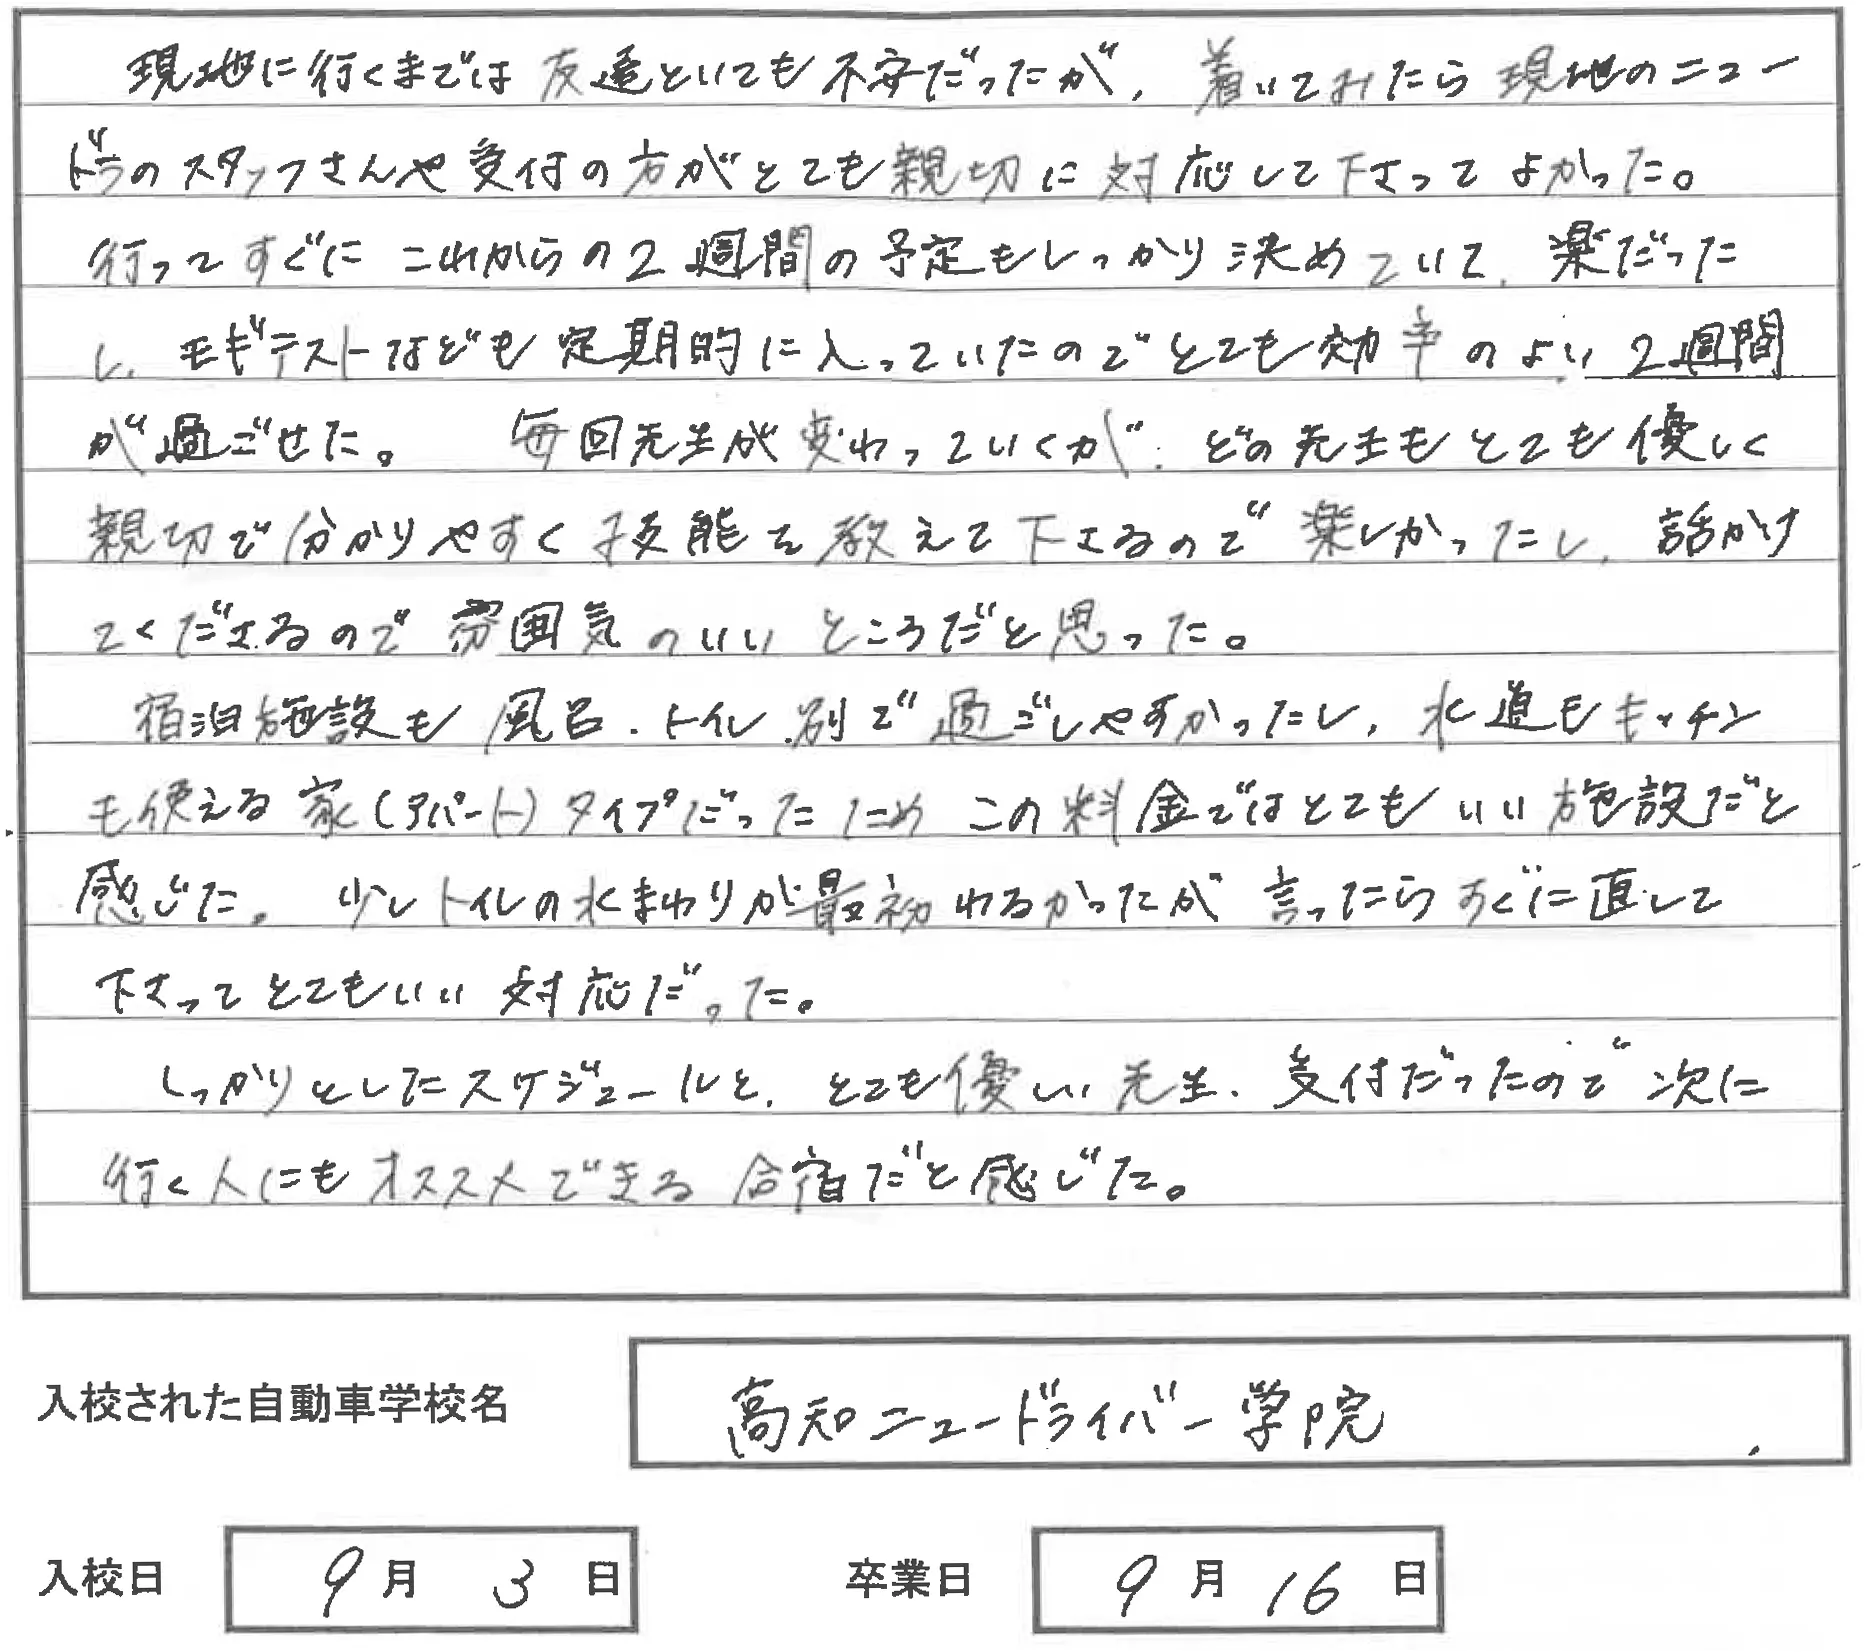 現地に行くまでは友達といても不安だったが、着いてみたら現地のニュー
ドラのスタッフさんや受付の方がとても親切に対応して下さってよかった。
行ってすぐにこれからの2週間の予定もしっかり決めていて、楽だった
し、モギテストなども定期的に入っていたのでとても効率のよい2週間
が過ごせた。 毎回先生が変わっていくが、どの先生もとても優しく
親切で分かりやすく技能を教えて下さるので楽しかったし、話かけ
てくださるので雰囲気のいいところだと思った。
宿泊施設も風呂・トイレ別で過ごしやすかったし、水道もキッチン
も使える家(アパート)タイプだったためこの料金ではとてもいい施設だと
感じた。少しトイレの水まわりが最初わるかったが言ったらすぐに直して
下さってとてもいい対応だった。
しっかりとしたスケジュールと、とても優しい先生、受付だったので次に
行く人にもオススメできる合宿だと感じた。
入校された自動車学校名 高知ニュードライバー学院
入校日 9月3日 卒業日 9月16日